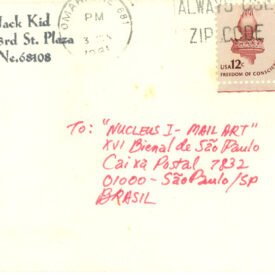 Jack Kid
3rd St. Plaza
Ne. 68108
OMAHA, NE 681
PM
3 JUN
1981
ALWAYS USE
ZIP CODE
USA 12c
FREEDOM OF CONSCIENCE
To: "NUCLEUS I - MAIL ART"
XVI Bienal de São Paulo
Caixa Postal 7832
01000 - São Paulo/SP
BRASIL